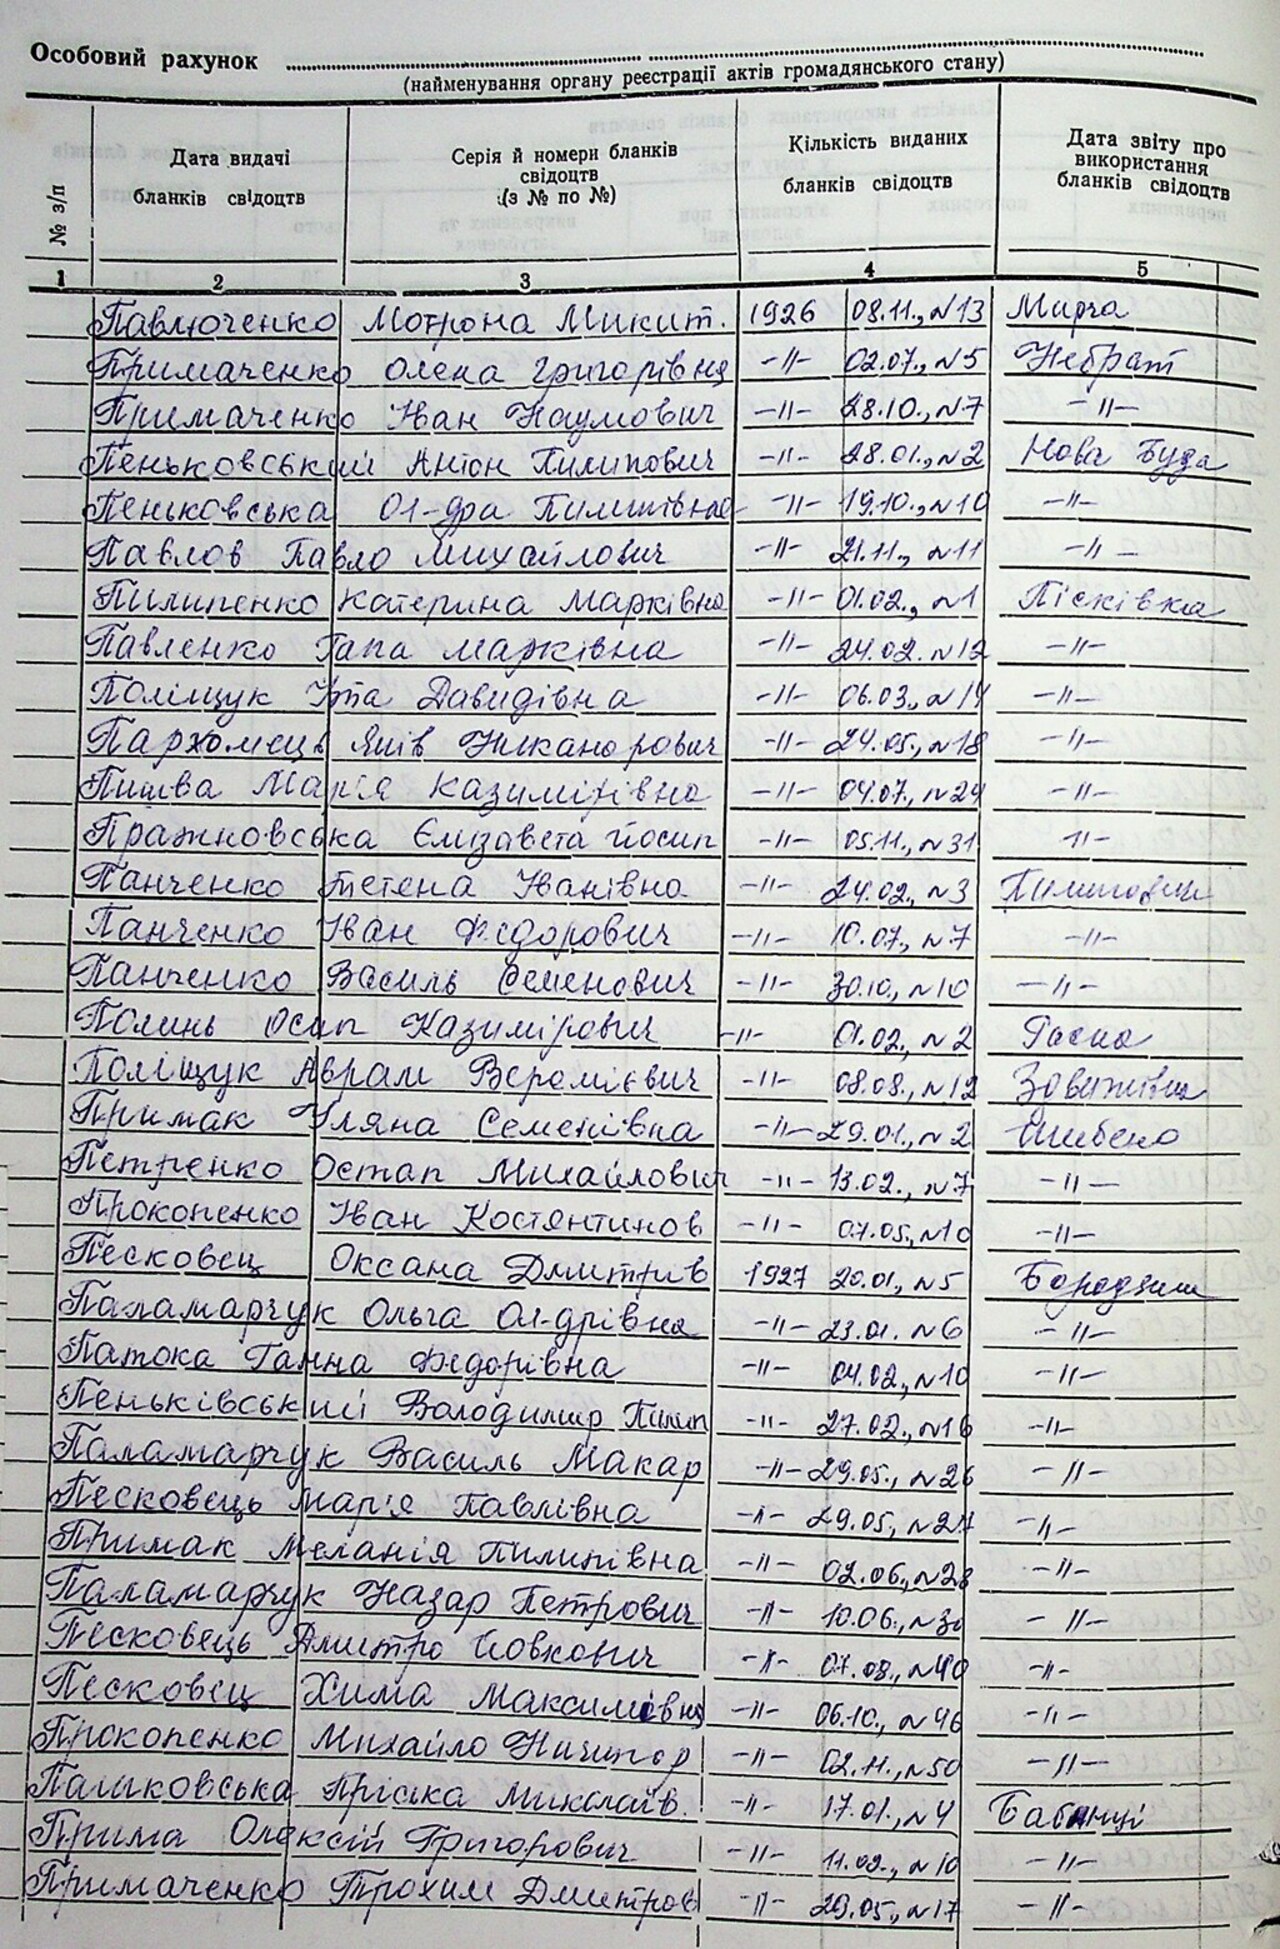 Особовий рахунок
(найменування органу реєстрації актів громадянського стану)
№ з/п
Дата видачі бланків свідоцтв
Серія й номери бланків свідоцтв (з № по №)
Кількість виданих бланків свідоцтв
Дата звіту про використання бланків свідоцтв
1 2 3 4 5
Павлюченко Мотрона Микит. 1926 08.11., N13 Мирча
Примаченко Олена Григорівна -//- 02.07., N5 Небрат
Примаченко Іван Наумович -//- 28.10., N7 -//-
Пеньковський Антон Пилипович -//- 28.01., N2 Нова Буда
Пеньковська Ол-дра Пилипівна -//- 19.10., N10 -//-
Павлов Павло Михайлович -//- 21.11., N11 -//-
Пилипенко Катерина Марківна -//- 01.02., N1 Пісківка
Павленко Гапа Марківна -//- 24.02. N12 -//-
Поліщук Ита Давидівна -//- 06.03., N14 -//-
Пархомець Яків Никанорович -//- 24.05., N18 -//-
Марія Казимірівна -//- 04.07., N24 -//-
Пражновська Єлізавета Йосип -//- 05.11., N31 -//-
Панченко Тетена Іванівна -//- 24.02., N3 Пилиповичі
Панченко Іван Федорович -//- 10.07., N7 -//-
Панченко Василь Семенович -//- 30.10., N10 -//-
Полинь Осип Казимірович -//- 01.02., N2 Расна
Поліщук Аврам Веремієвич -//- 08.08., N12 Здвижівка
Примак Уляна Семенівна -//- 29.01., N2 Шибено
Петренко Остап Михайлович -//- 13.02., N7 -//-
Прокопенко Іван Костянтинов -//- 07.05., N10 -//-
Песковец Оксана Дмитрів 1927 20.01., N5 Бородянка
Паламарчук Ольга Ол-дрівна -//- 23.01. N6 -//-
Патока Ганна Федорівна -//- 04.02., N10 -//-
Пеньківський Володимир Пилип -//- 27.02., N16 -//-
Паламарчук Василь Макар -//- 29.05., N26 -//-
Песковець Марія Павлівна -//- 29.05., N27 -//-
Примак Меланія Пилипівна -//- 02.06., N28 -//-
Паламарчук Назар Петрович -//- 10.06., N30 -//-
Песковець Дмитро Йовхович -//- 07.08., N40 -//-
Песковец Хима Максимівна -//- 06.10., N46 -//-
Прокопенко Михайло Ничипор -//- 02.11., N50 -//-
Пашковська Пріська Миколаїв. -//- 17.01., N4 Бабинці
Прима Олексій Григорович -//- 11.02., N10 -//-
Примаченко Трохим Дмитров -//- 29.05., N17 -//-